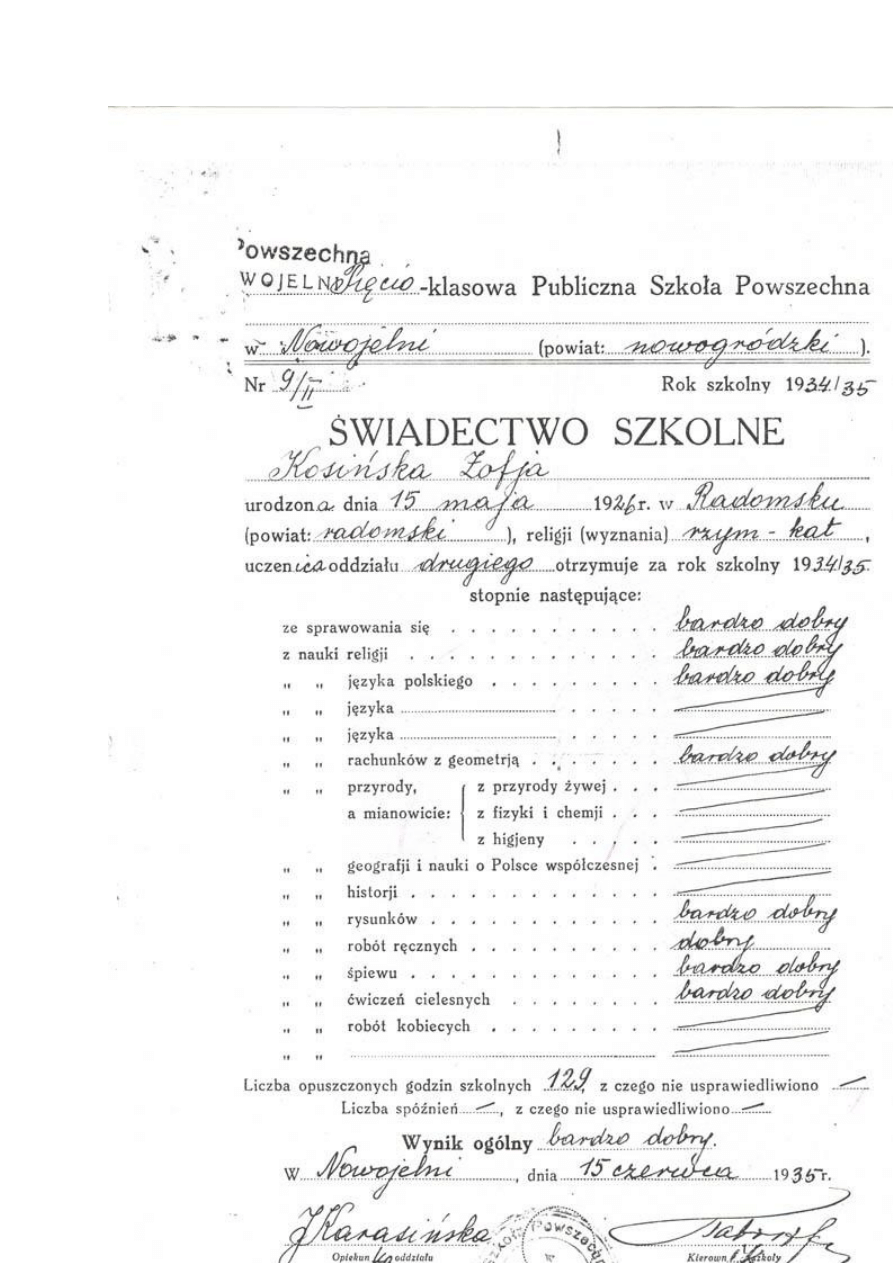 Powszechna
WOJELN Pięcio-klasowa Publiczna Szkoła Powszechna
w Nowojelni (powiat: nowogródzki ).
Nr 9/II Rok szkolny 1934/35
ŚWIADECTWO SZKOLNE
Kosińska Zofja
urodzona dnia 15 maja 1926 r. w Radomsku
(powiat: radomski ), religji (wyznania) rzym-kat ,
uczenica oddziału drugiego otrzymuje za rok szkolny 1934/35
stopnie następujące:
ze sprawowania się . . . . . . . . . . . bardzo dobry
z nauki religji . . . . . . . . . . . . . bardzo dobry
„ „ języka polskiego . . . . . . . . . bardzo dobry
„ „ języka
„ „ języka
„ „ rachunków z geometrją . . . . . . . bardzo dobry
„ „ przyrody, z przyrody żywej . . .
a mianowicie: z fizyki i chemji . . .
z higjeny . . . . .
„ „ geografji i nauki o Polsce współczesnej .
„ „ historji . . . . . . . . . . . . .
„ „ rysunków . . . . . . . . . . . . bardzo dobry
„ „ robót ręcznych . . . . . . . . . . dobry
„ „ śpiewu . . . . . . . . . . . . . bardzo dobry
„ „ ćwiczeń cielesnych . . . . . . . . bardzo dobry
„ „ robót kobiecych . . . . . . . . .
„ „
Liczba opuszczonych godzin szkolnych 129, z czego nie usprawiedliwiono —
Liczba spóźnień —, z czego nie usprawiedliwiono —
Wynik ogólny bardzo dobry.
W Nowojelni, dnia 15 czerwca 1935 r.
JKarasińska
Opiekun oddziału
Kierown Szkoły